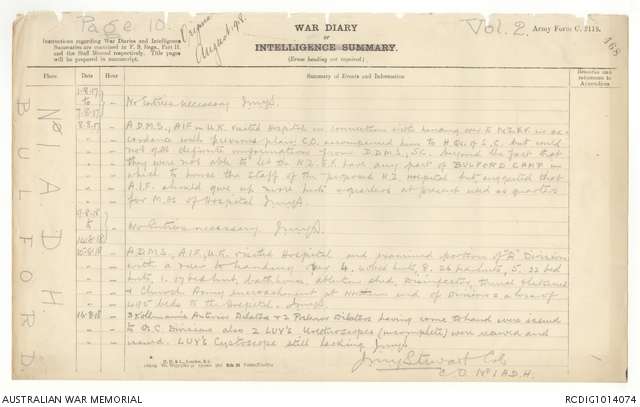 Page 10.
Original
August 1918.
Vol. 2.
Army Form C. 2118.
168
WAR DIARY
or
INTELLIGENCE SUMMARY.
(Erase heading not required.)
Instructions regarding War Diaries and Intelligence
Summaries are contained in F. S. Regs., Part II.
and the Staff Manual respectively. Title pages
will be prepared in manuscript.
Place
Date
Hour
Summary of Events and Information
Remarks and
references to
Appendices
No 1 A.D.H.
BULFORD.
to
No Entries necessary
8.8.18 A.D.M.S., A.I.F. in U.K. visited Hospital in connection with handing over to N.Z.E.F. in ac-
cordance with previous plan C.O. accompanied him to H.Qrs of S.C. but could
not get definite information from D.D.M.S., S.C. beyond the fact that
they were not able to let the N.Z.E.F. have any part of BULFORD CAMP in
which to house the staff of the proposed N.Z. Hospital but suggested that
A.I.F. should give up more huts & quarters at present used as quarters
for M.Os of Hospital
9.8.18
to
No Entries necessary
15.8.18 A.D.M.S., A.I.F., U.K. visited Hospital and examined portions of "A" Division
with a view to handing over 4. 40 bed huts, 8. 26 bed huts, 5. 22 bed
huts, 1. 17 bed hut, bath house, ablution shed, Disinfector,
& Church Army end of Division & a loss of
495 beds to the Hospital.
16.8.18 3 Kollmann's Anterior Dilators & 2 Posterior Dilators having come to hand were issued
to B.C. Divisions also 2 LUY'S Urethroscopes (incomplete) were received and
issued. LUY'S Cystoscope still lacking
Stewart Col.
C.O. No 1 A.D.H.
D. D. & L., London, E.C.
AUSTRALIAN WAR MEMORIAL
RCDIG1014074